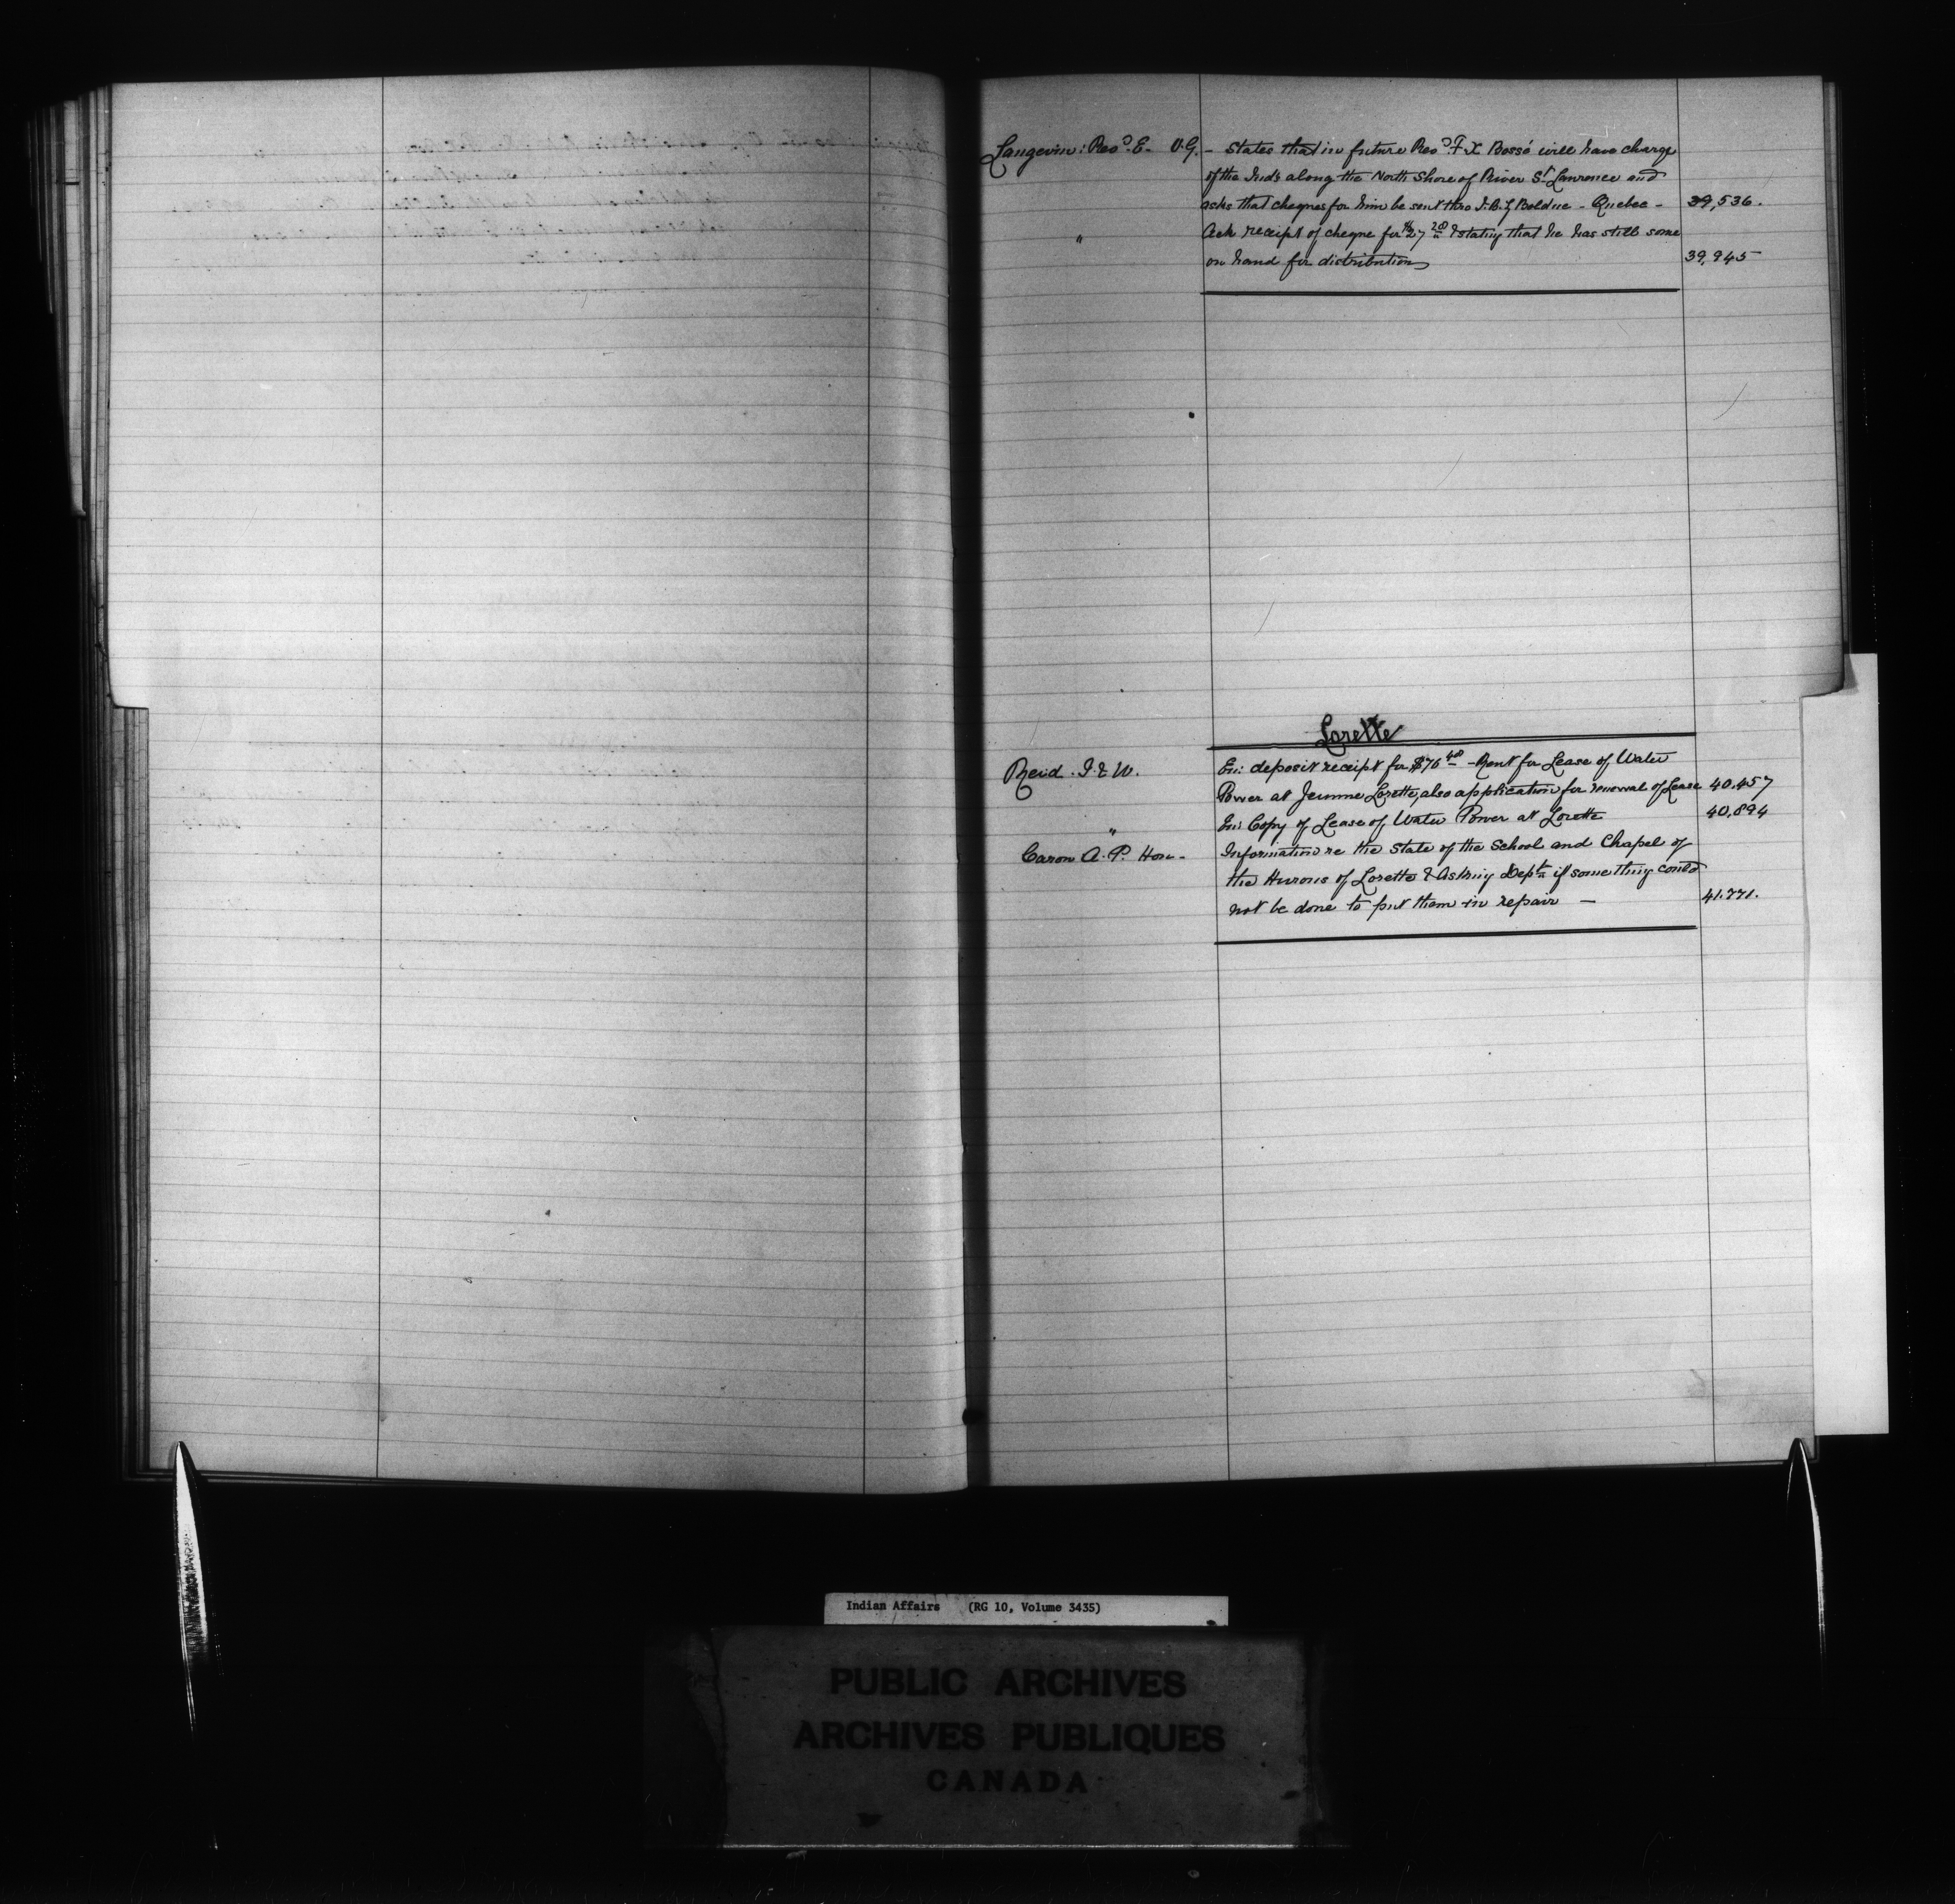 Langevin: Revd. E. V.G. - States that in future Revd. F X Bossé will have charge
of the Inds along the North Shore of River St. Lawrence and
asks that cheques for him be sent thro J.B.Z Bolduc - Quebec - 39,536.
" Ack receipt of cheque for $27 20 & stating that he has still some
on hand for distribution 39,945
Lorette
Reid J. & W. En: deposit receipt for $76 40 - Rent for Lease of Water
Power at Jeunne Lorette, also application for renewal of Lease 40,457
" En: Copy of Lease of Water Power at Lorette 40,894
Caron A. P. Hon - Information re the State of the School and Chapel of
the Hurons of Lorette & Asking Deptn if something could
not be done to put them in repair - 41.771.
Indian Affairs (RG 10, Volume 3435)
PUBLIC ARCHIVES
ARCHIVES PUBLIQUES
CANADA